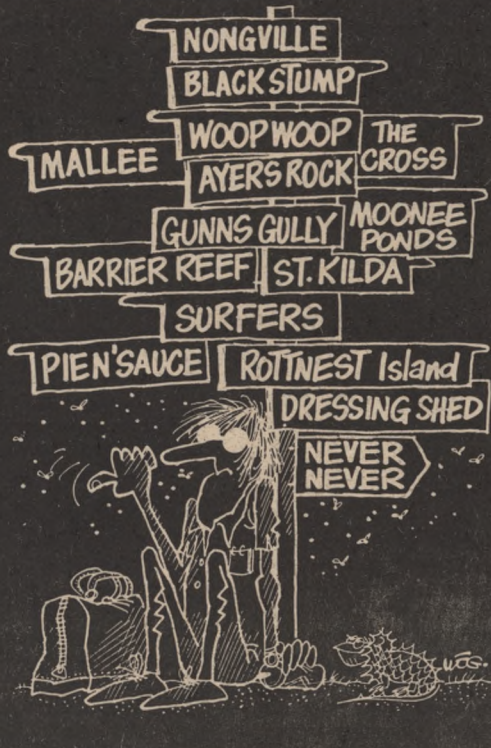 NONGVILLE
BLACK STUMP
WOOP WOOP
THE
CROSS
MALLEE
AYERS ROCK
GUNNS GULLY
MOONEE
PONDS
BARRIER REEF
ST. KILDA
SURFERS
PIE N' SAUCE
ROTTNEST Island
DRESSING SHED
NEVER
NEVER